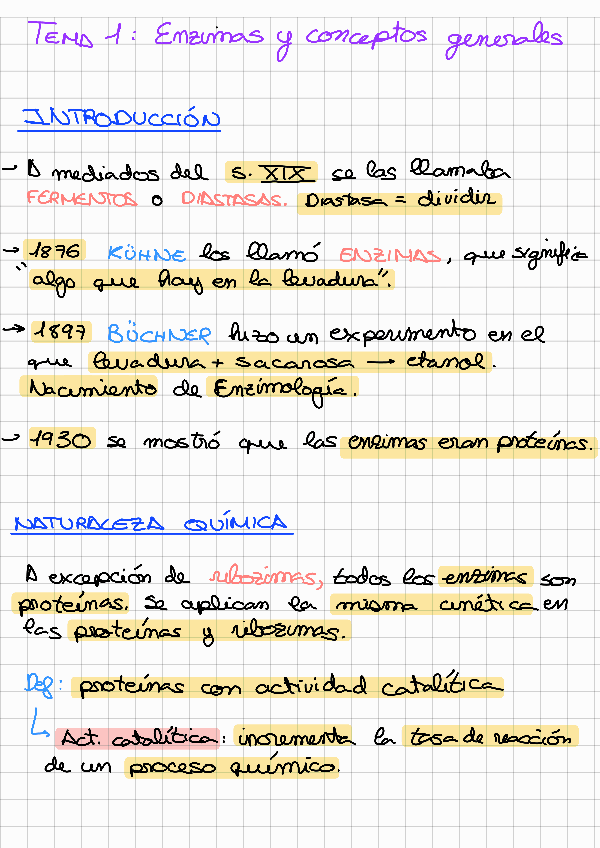 TEMA 1: Enzimas y conceptos generales
INTRODUCCIÓN
→ A mediados del s. XIX se las llamaba
FERMENTOS o DIASTASAS. Diastasa = dividir
→ 1876 KÜHNE los llamó ENZIMAS, que significa
"algo que hay en la levadura".
→ 1897 BÜCHNER hizo un experimento en el
que levadura + sacarosa → etanol.
Nacimiento de Enzimología.
→ 1930 se mostró que las enzimas eran proteínas.
NATURALEZA QUÍMICA
A excepción de ribozimas, todos los enzimas son
proteínas. Se aplican la misma cinética en
las proteínas y ribozimas.
Def: proteínas con actividad catalítica
↳ Act. catalítica: incrementa la tasa de reacción
de un proceso químico.